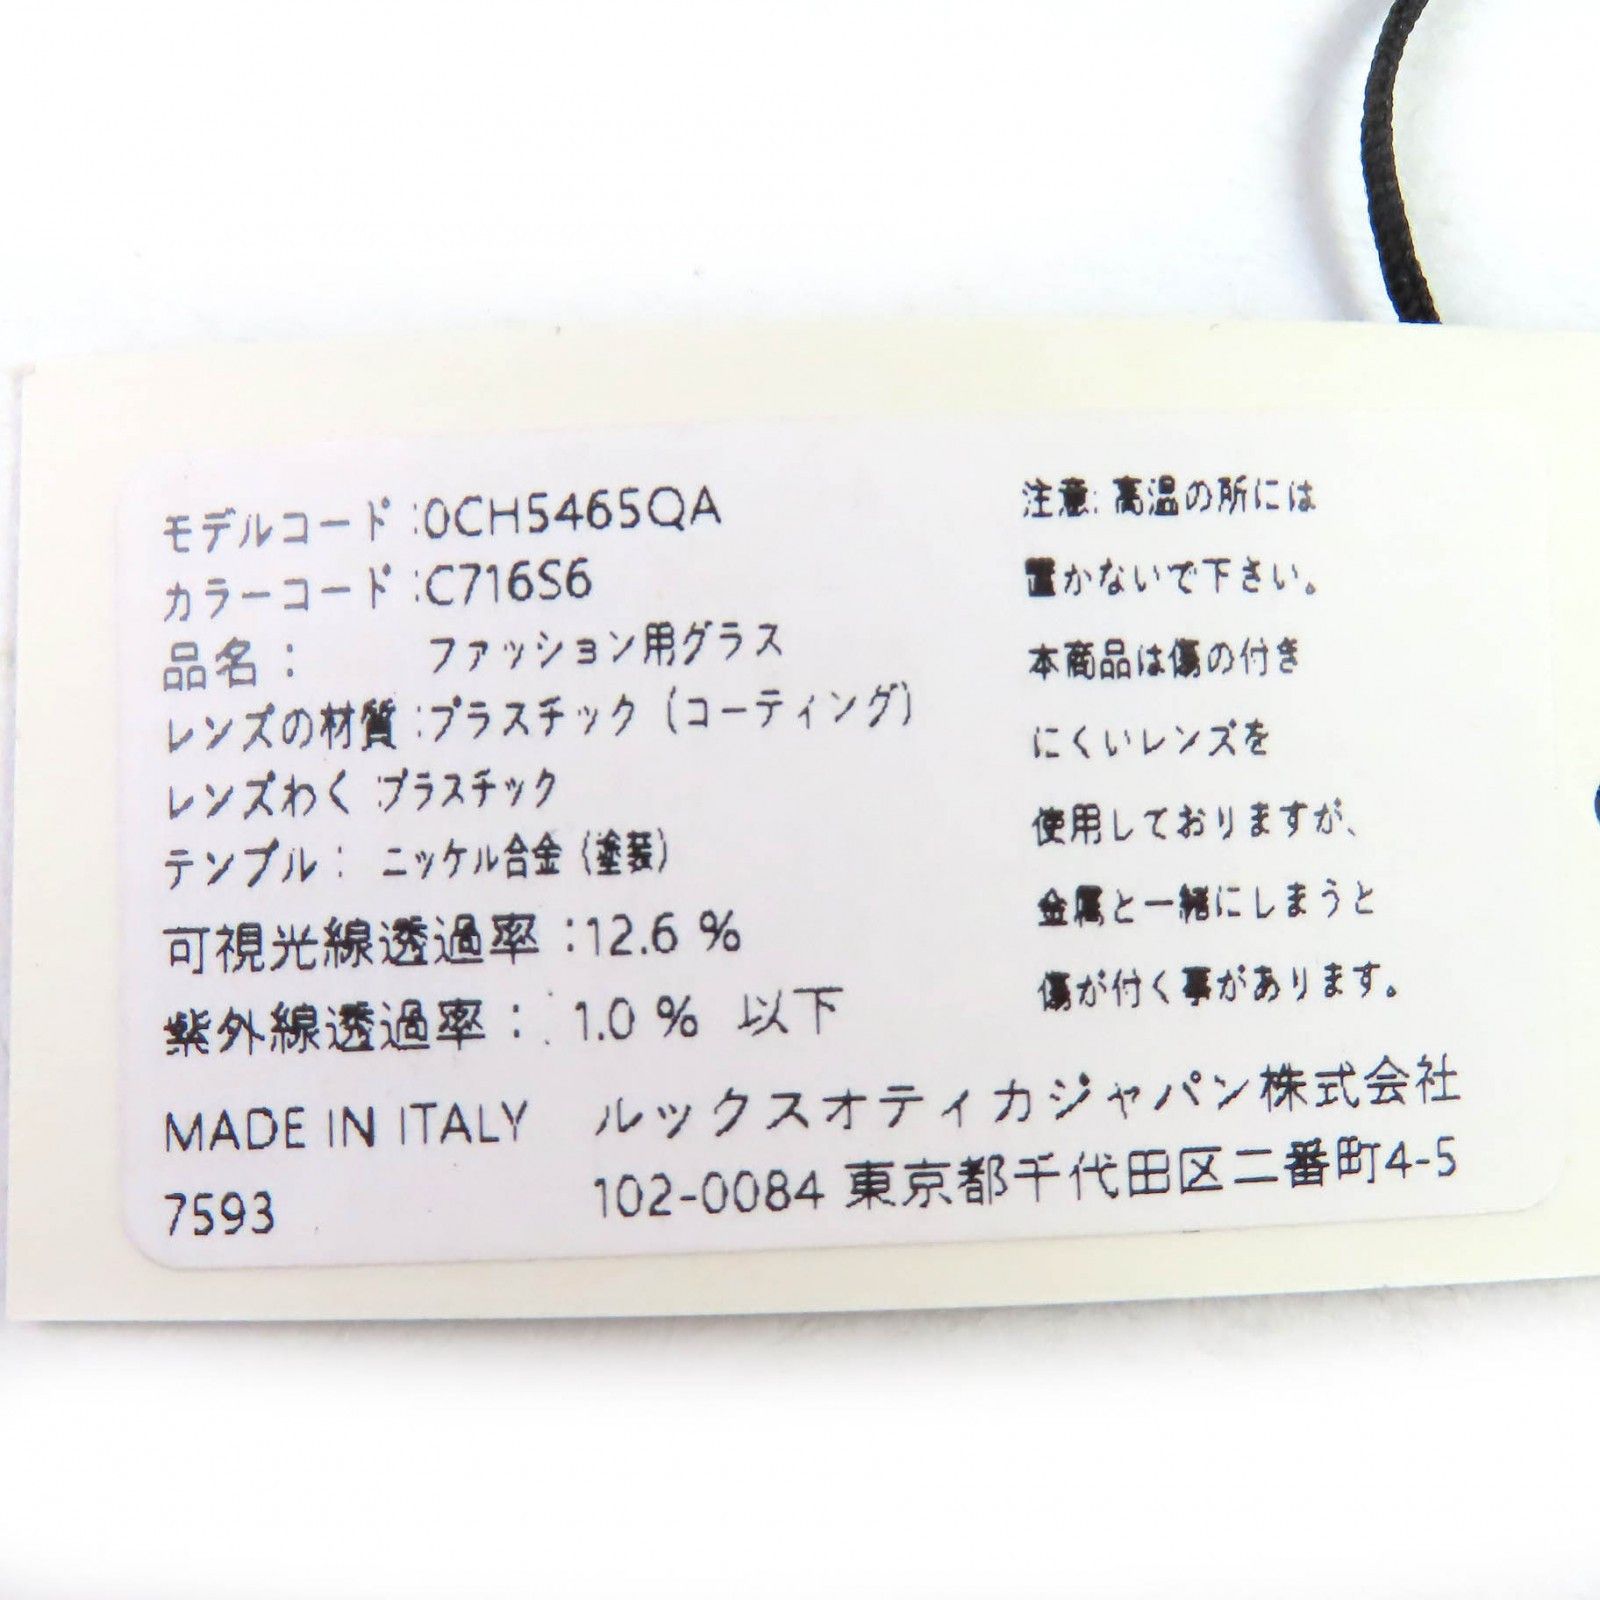 モデルコード:0CH5465QA
カラーコード:C716S6
品名: ファッション用グラス
レンズの材質:プラスチック(コーティング)
レンズわく:プラスチック
テンプル: ニッケル合金(塗装)
可視光線透過率:12.6 %
紫外線透過率: : 1.0 % 以下
注意:高温の所には
置かないで下さい。
本商品は傷の付き
にくいレンズを
使用しておりますが、
金属と一緒にしまうと
傷が付く事があります。
MADE IN ITALY ルックスオティカジャパン株式会社
7593 102-0084 東京都千代田区二番町4-5